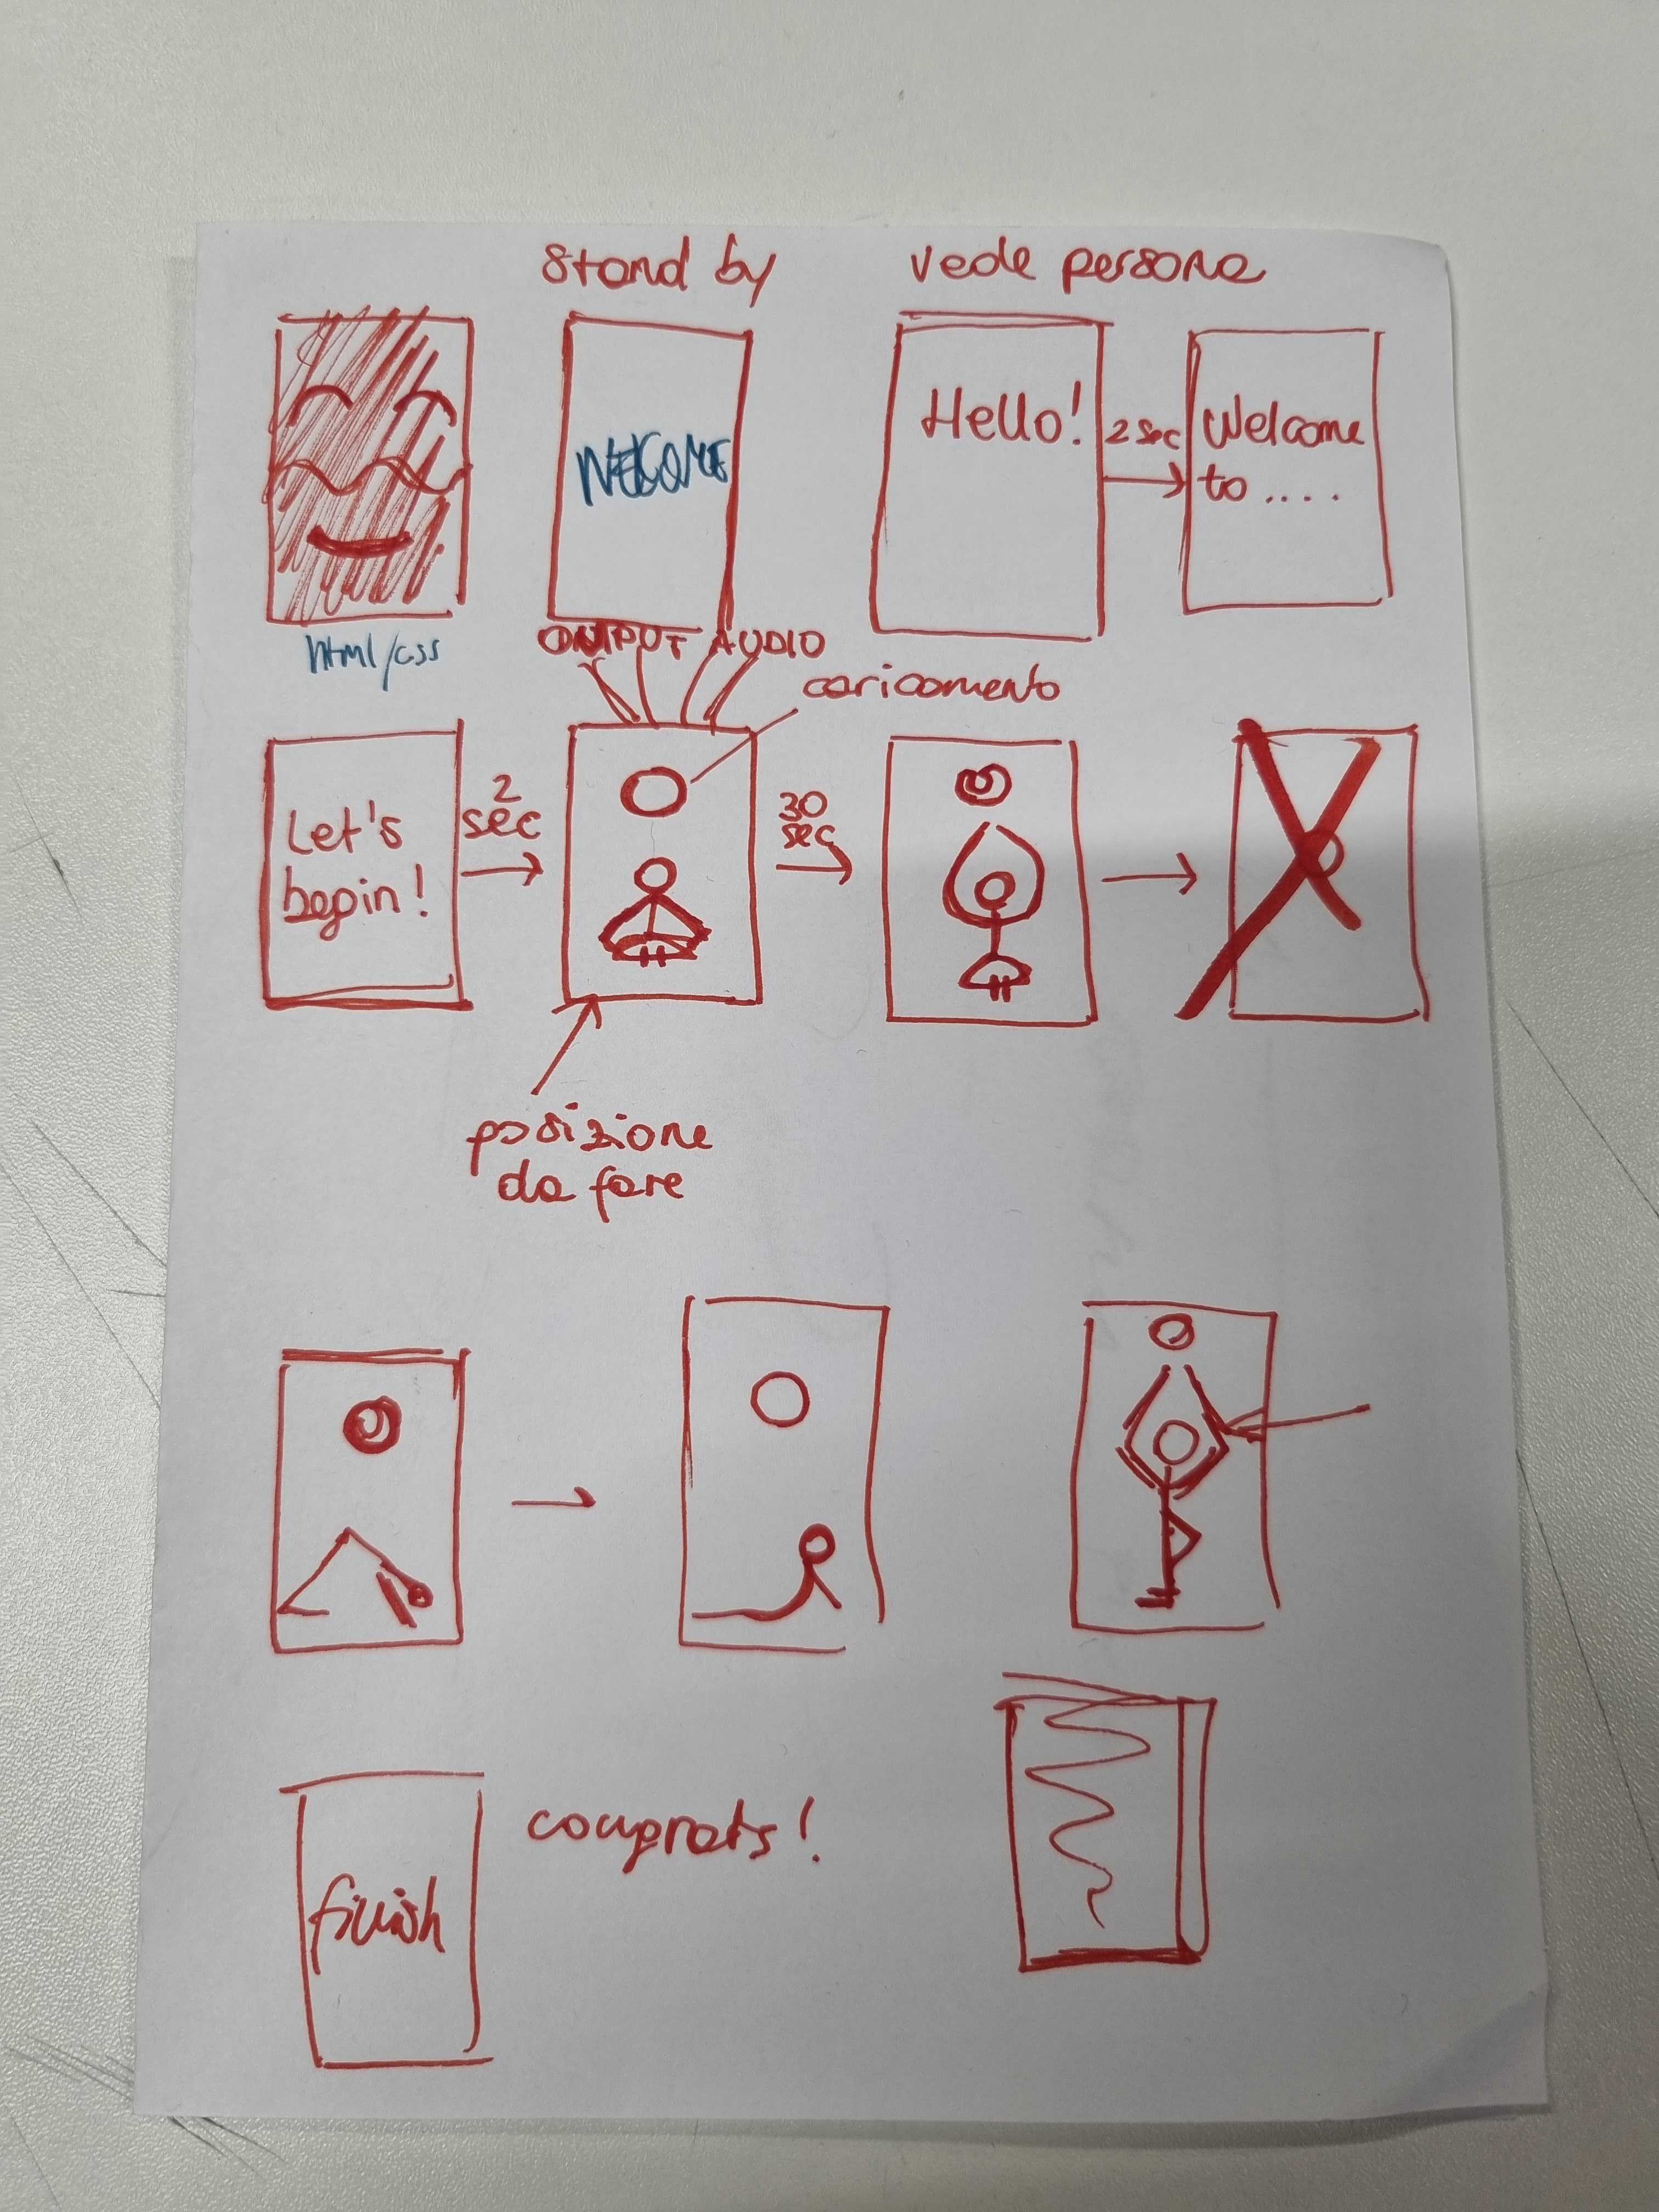 stand by
vede persona
WELCOME
Hello!
2 sec
Welcome
to ....
html/css
OUTPUT AUDIO
caricamento
Let's
begin!
2
sec
30
sec
posizione
da fare
finish
congrats!